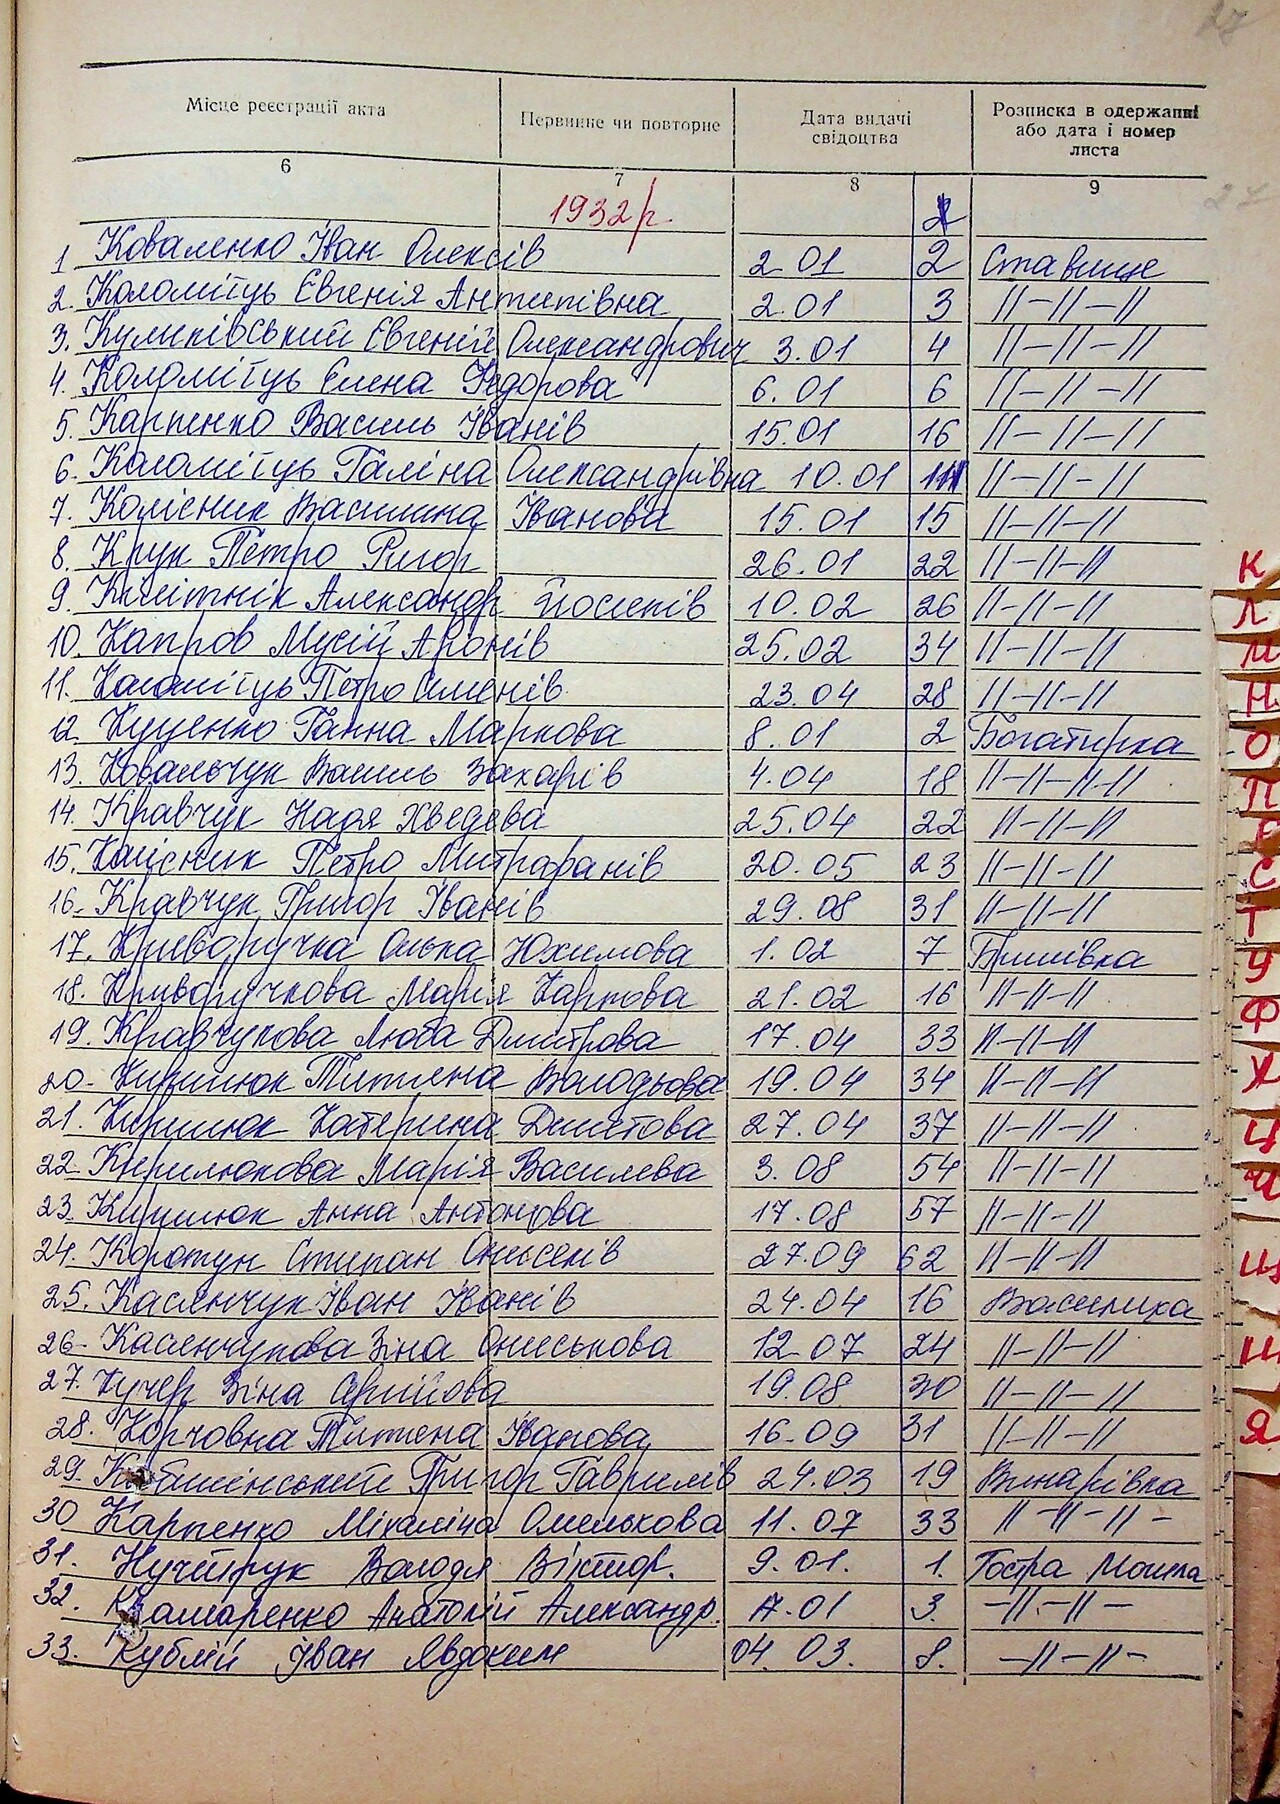 27
Місце реєстрації акта Первинне чи повторне Дата видачі свідоцтва Розписка в одержанні або дата і номер листа
6 7 8 9
27
1932 р.
1 Коваленко Іван Олексів 2.01 2 Ставище
2. Коломієць Євгенія Антипівна 2.01 3 //-//-//
3. Куликівський Євгеній Олександрович 3.01 4 //-//-//
4. Коломієць Єлена Федорова 6.01 6 //-//-//
5. Карпенко Василь Іванів 15.01 16 //-//-//
6. Коломієць Галіна Олександрівна 10.01 11 //-//-//
7. Колісник Василина Іванова 15.01 15 //-//-//
8. Крук Петро Ригор 26.01 22 //-//-//
9. Квітнік Александр Йосипів 10.02 26 //-//-//
10. Капров Мусій Аронів 25.02 34 //-//-//
11. Коломієць Петро Семенів 23.04 28 //-//-//
12. Куценко Ганна Маркова 8.01 2 Богатирка
13. Ковальчук Василь Захарів 4.04 18 //-//-//-//
14. Кравчук Надя Хведєва 25.04 22 //-//-//
15. Колісник Петро Митрафанів 20.05 23 //-//-//
16. Кравчук Григор Іванів 29.08 31 //-//-//
17. Криворучка Олька Юхимова 1.02 7 Бришівка
18. Криворучкова Марія Карпова 21.02 16 //-//-//
19. Кравчукова Люба Дмитрова 17.04 33 //-//-//
20. Кирилюк Титяна Володьова 19.04 34 //-//-//
21. Кирилюк Катерина 27.04 37 //-//-//
22. Кирилюкова Марія Василева 3.08 54 //-//-//
23. Кирилюк Анна Антонова 17.08 57 //-//-//
24. Коротун Стипан Онисенів 27.09 62 //-//-//
25. Касянчук Іван Іванів 24.04 16 Василиха
26. Касянчукова Зіна Ониськова 12.07 24 //-//-//
27. Кучер Зіна Сергійова 19.08 30 //-//-//
28. Корчовна Титяна Іванова 16.09 31 //-//-//
29. Григор Гаврилів 24.03 19 Винарівка
30 Карпенко Міхаліна Омелькова 11.07 33 //-//-//-
31. Кучерук Володя Віктор. 9.01. 1. Гостра Могила
32. Крамаренко Анатолій Александр. 17.01 3. -//-//-
33. Кублій Іван Явдоким 04.03. 8. -//-//-
К
Л
М
Н
О
П
Р
С
Т
У
Ф
Х
Ц
Ч
Щ
Ш
Я